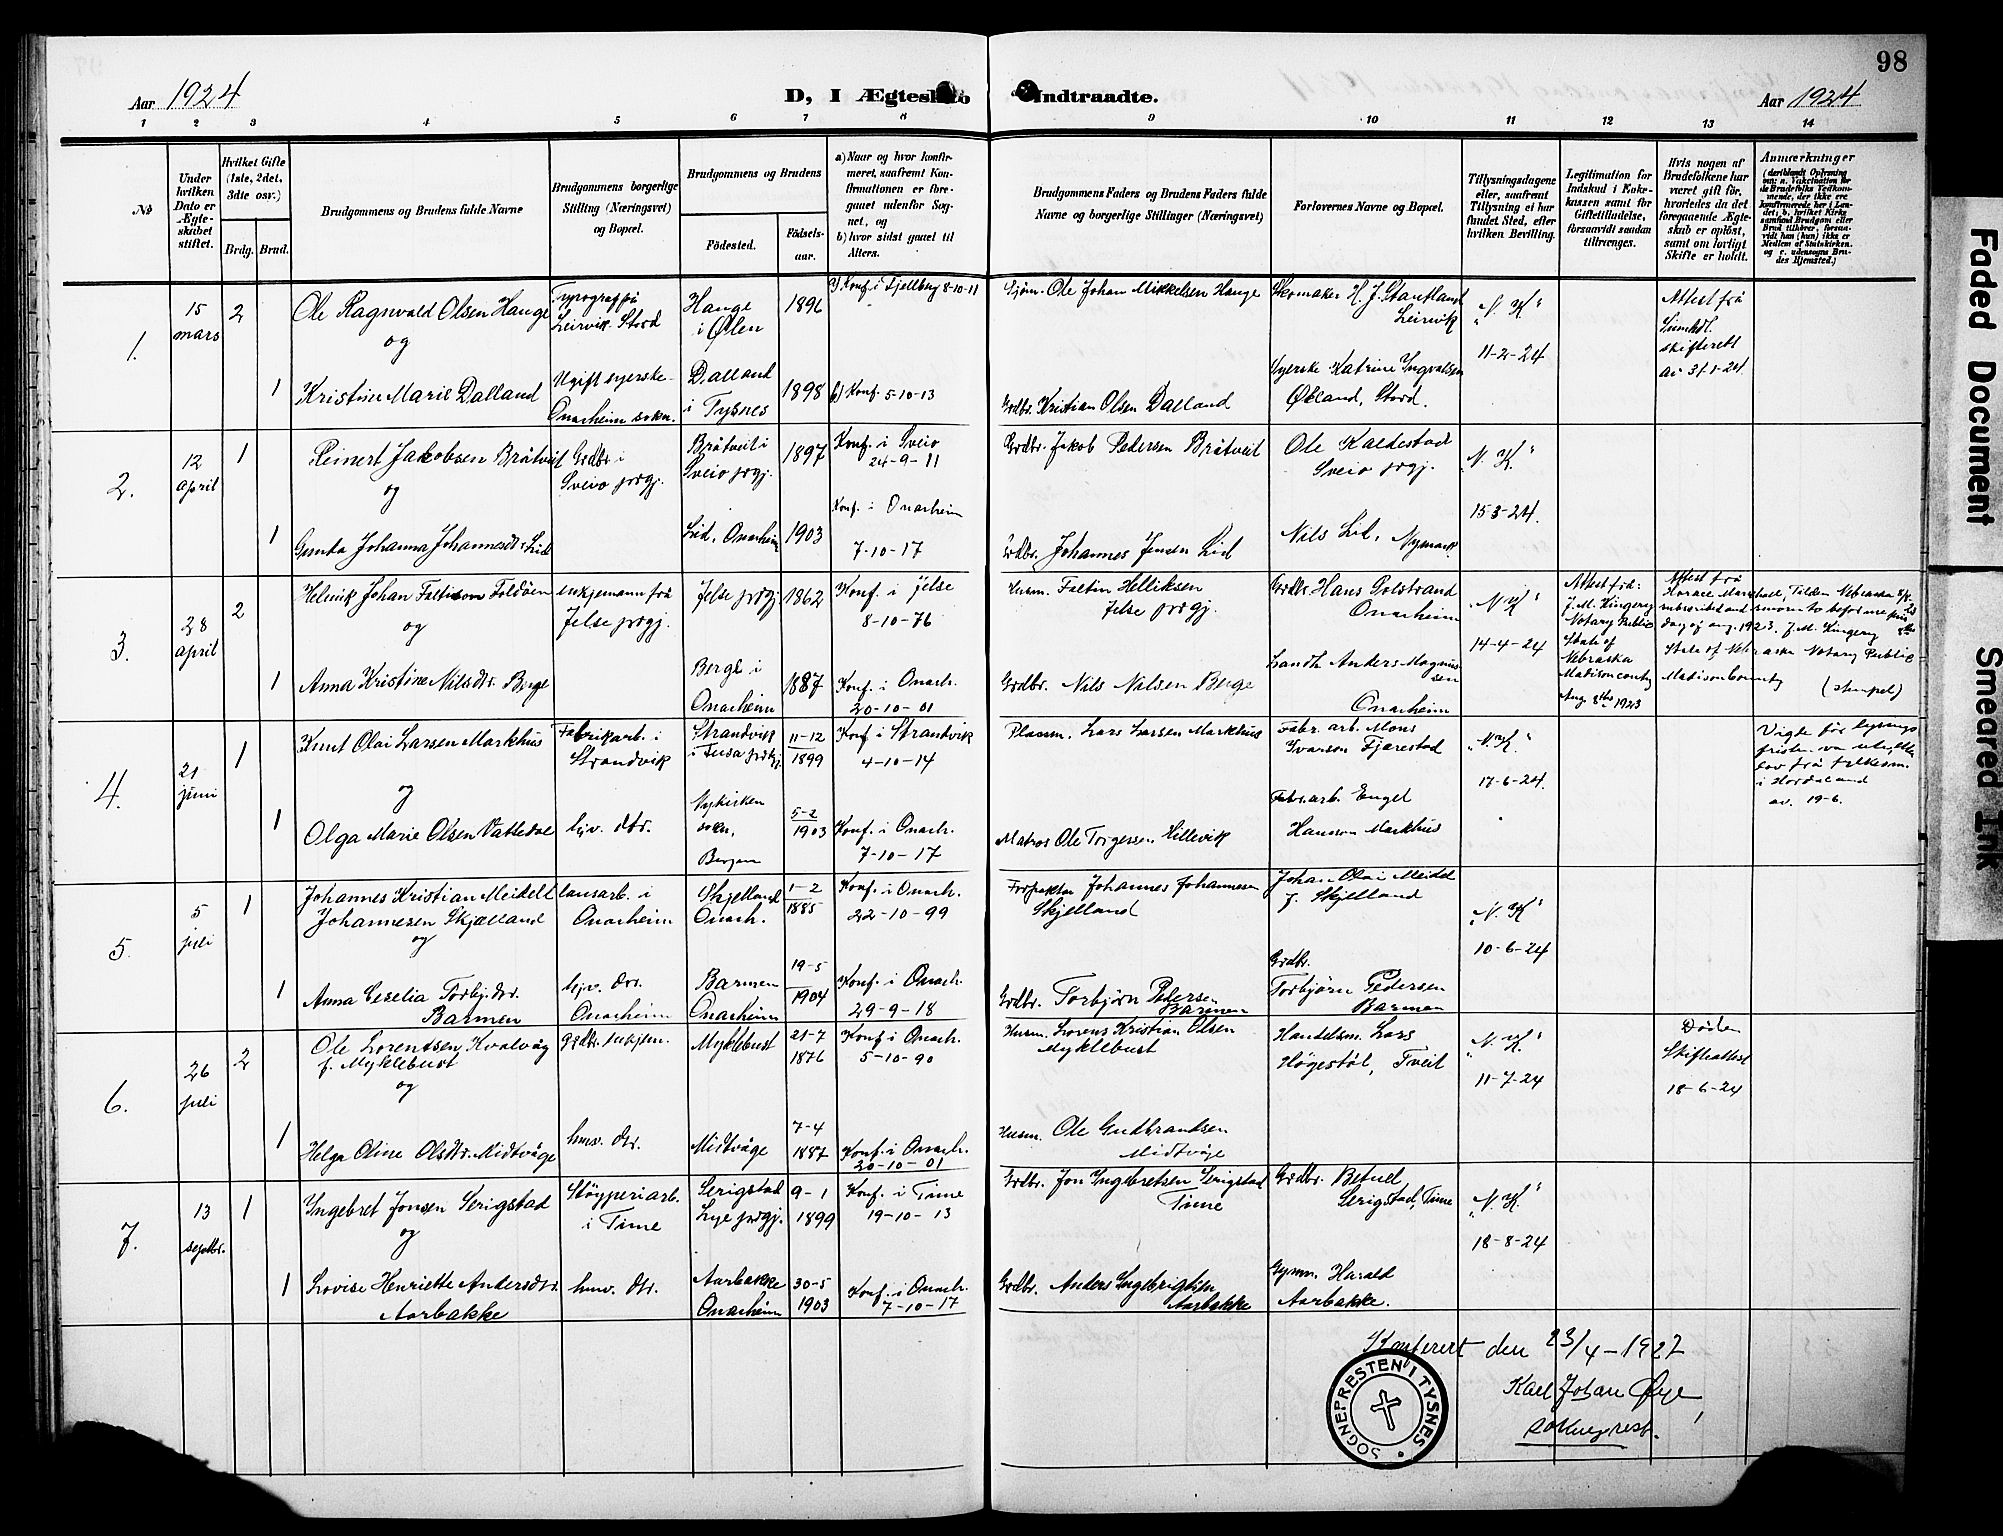 98
Aar 1924
D, I Ægtesk
Indtraadte.
Aar 1924
1 2 3 4 5 6 7 8 9 10 11 12 13 14
No
Under hvilken Dato er Ægte-skabet stiftet.
Hvilket Gifte (1ste, 2det, 3die osv.)
Brdg. Brud.
Brudgommens og Brudens fulde Navne
Brudgommens borgerlige Stilling (Næringsvei) og Bopæl.
Brudgommens og Brudens
Fødested.
Fødsels-aar.
a) Naar og hvor konfir-meret, saafremt Kon-firmationen er fore-gaaet udenfor Sog-net, og
b) hvor sidst gaaet til Alters.
Brudgommens Faders og Brudens Faders fulde Navne og borgerlige Stillinger (Næringsvei)
Forlovernes Navne og Bopæl.
Tillysningsdagene eller, saafremt Tillysning ei har fundet Sted, efter hvilken Bevilling.
Legitimation for Indskud i Enke-kassen samt for Giftetilladelse, forsaavidt saadan tiltrænges.
Hvis nogen af Brudefolkene har været gift før, hvorledes da det foregaaende Ægte-skab er opløst, samt om lovligt Skifte er holdt.
Anmærkninger
1.
15 mars
2
Ole Ragnvald Olsen Hauge
og
Typograf på
Leirvik. Stord
Hauge
i Ølen
1896
a) Konf. i Fjellberg 8-10-11
Sjøm. Ole Johan Mikkelsen Hauge
Skomaker H. J. Stautland
Leirvik
"N. K"
11-2-24
Attest frå
skifterett
av 31-1-24
1
Kristine Marie Dalland
Ugift syerske
Onarheim sokn.
Dalland
i Tysnes
1898
b) Konf. 5-10-13
Grdbr. Kristian Olsen Dalland
Syerske Katrine Ingvaldsen
Økland, Stord.
2.
12 april
1
Reinert Jakobsen Bråtveit
og
Grdbr. i
Sveio prgj.
Bråtveit i
Sveio prgj.
1897
Konf. i Sveio
24-9-11
Grdbr. Jakob Pedersen Bråtveit
Ole Kaldestad
Sveio prgj.
"N. K"
15-3-24.
1
Johanna Johannesdtr. Lid
Lid, Onarheim
1903
Konf. i Onarheim
7-10-17
Grdbr. Johannes Jensen Lid
Nils Lid, Nymark.
3.
28 april
2
Helmik Johan Foldøen
og
enkjemann frå
Jelse prgj.
Jelse prgj.
1862
Konf. i Jelse
8-10-76
Husm. Faltin Helliksen
Jelse prgj.
Grdbr. Hans Solstrand
Onarheim
"N. K"
14-4-24
Attest frå:
J. M. Kingery
Notary Public
State of
Nebraska
Madison county
Aug 8the 1923
Attest frå
Tilden Nebraska
State of Nebraska Notary Public
Madison County (stempel)
1
Anna Kristine Nilsdtr. Berge
Berge i
Onarheim
1887
Konf. i Onarh.
20-10-01
Grdbr. Nils Nilsen Berge
Landh. Anders Magnussen
Onarheim
4.
21 juni
1
Knut Olai Larsen Markhus
og
Fabrikarb. i
Strandvik
Strandvik
i Fusa prgj.
11-12
1899
Konf. i Strandvik
4-10-14
Plassm. Lars Larsen Markhus
Fabr. arb. Mons
Ivarson Fjærestad
"N. K."
17-6-24.
Vigde før lysings
i Hordaland
av. 19-6.
1
Olga Marie Olsen Vattedal
hjv. dtr.
Nykirken
sokn,
Bergen
5-2
1903
Konf. i Onarh.
7-10-17
Matros Ole Torgersen Hillevik
Fabr. arb. Engel
Hanson Markhus
5.
5 juli
1
Johannes Kristian Meidell
Johannesen Skjælland
og
lausarb. i
Onarheim
Skjelland
Onarh.
1-2
1885
Konf. i Onarh.
22-10-99
Johannes Johannesen
Skjelland
Johan Olai Meidell
J. Skjelland
"N. K"
10-6-24
1
Anna Cecelia Torbj.dtr.
Barmen
hjv. dtr.
Onarheim
Barmen
Onarheim
19-5
1904
Konf. i Onarh.
29-9-18
Grdbr. Torbjørn Pedersen
Barmen
Grdbr.
Torbjørn Pedersen
Barmen
6.
26 juli
2
Ole Lorentsen Kvalvåg
f. Myklebust
og
grdbr. enkjem.
Myklebust
21-7
1876
Konf. i Onarh.
5-10-90
Husm. Lorens Kristian Olsen
Myklebust
Handelsm. Lars
Høgestøl, Tveit
"N. K"
11-7-24
Døden
Skifteattest
18-6-24
1
Helga Oline Olsdtr. Midtvåge
husv. dtr.
Midtvåge
7-4
1887
Konf. i Onarh.
20-10-01
Husm. Ole Gudbrandsen
Midtvåge
7.
13 septbr.
1
Ingebret Jonsen Serigstad
og
Støyperiarb.
i Time
Serigstad
Lye prgj.
9-1
1899
Konf. i Time
19-10-13
Grdbr. Jon Ingebretsen Serigstad
Time
Grdbr. Betuel
Serigstad, Time
"N. K"
18-8-24
1
Lovise Henriette Andersdtr.
Aarbakke
husv. dtr.
Aarbakke
Onarheim
30-5
1903
Konf. i Onarh.
7-10-17
Grdbr. Anders Ingebrigtsen
Aarbakke
Gymn. Harald
Aarbakke.
Konferert den 23/4-1927
Karl Johan Øye,
sokneprest.
SOGNEPRESTEN I TYSNES
Faded Document
Smeared Ink